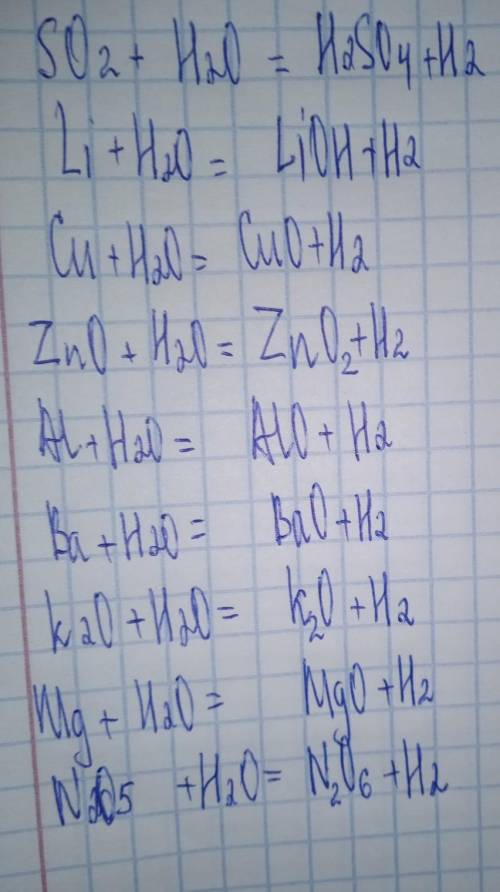 SO2 + H2O = H2SO4 + H2
Li + H2O = LiOH + H2
Cu + H2O = CuO + H2
ZnO + H2O = ZnO2 + H2
Al + H2O = AlO + H2
Ba + H2O = BaO + H2
K2O + H2O = K2O + H2
Mg + H2O = MgO + H2
N2O5 + H2O = N2O6 + H2